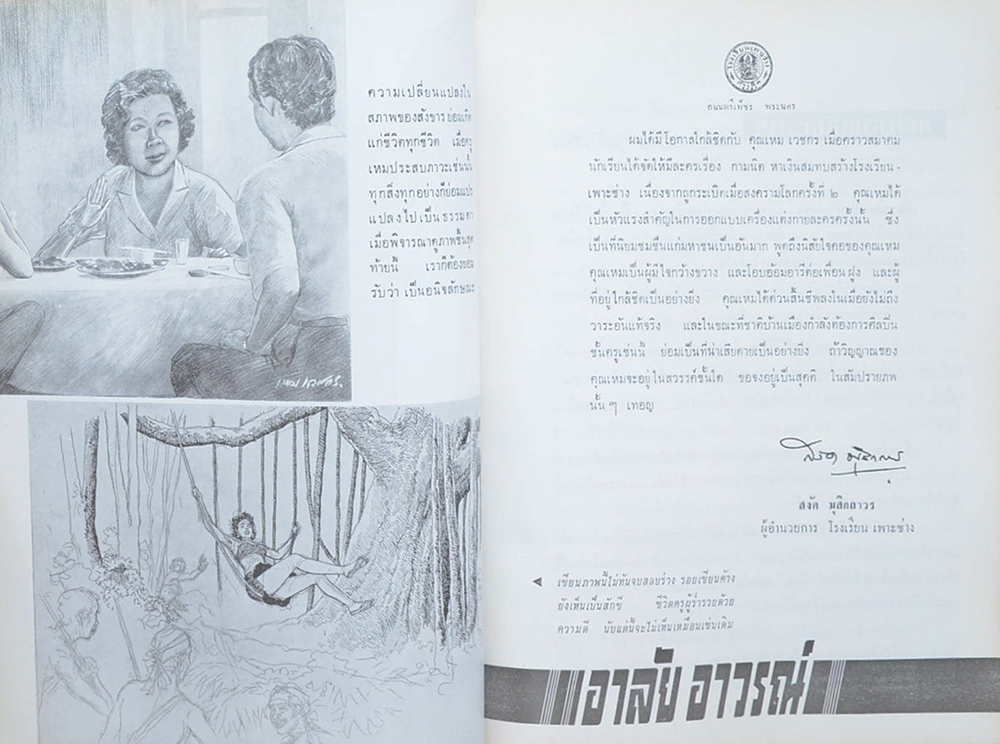 ความเปลี่ยนแปลงใน
สภาพของสังขารย่อมเกิด
แก่ชีวิตทุกชีวิต เมื่อครู
เหมประสบภาวะเช่นนั้น
ทุกสิ่งทุกอย่างก็ย่อมแปร
แปลงไปเป็นธรรมดา
เมื่อพิจารณาดูภาพชิ้นสุด
ท้ายนี้ เราก็ต้องยอม
รับว่า เป็นอนิจลักษณะ
เหม เวชกร.
ถนนตรีเพ็ชร พระนคร
ผมได้มีโอกาสใกล้ชิดกับ คุณเหม เวชกร เมื่อคราวสมาคม
นักเรียนได้จัดให้มีละครเรื่อง กามนิต หาเงินสมทบสร้างโรงเรียน -
เพาะช่าง เนื่องจากถูกระเบิดเมื่อสงครามโลกครั้งที่ ๒ คุณเหมได้
เป็นหัวแรงสำคัญในการออกแบบเครื่องแต่งกายละครครั้งนั้น ซึ่ง
เป็นที่นิยมชมชื่นแก่มหาชนเป็นอันมาก พูดถึงนิสัยใจคอของคุณเหม
คุณเหมเป็นผู้มีใจกว้างขวาง และโอบอ้อมอารีต่อเพื่อนฝูง และผู้
ที่อยู่ใกล้ชิดเป็นอย่างยิ่ง คุณเหมได้ด่วนสิ้นชีพลงในเมื่อยังไม่ถึง
วาระอันแท้จริง และในขณะที่ชาติบ้านเมืองกำลังต้องการศิลปิน
ชั้นครูเช่นนี้ ย่อมเป็นที่น่าเสียดายเป็นอย่างยิ่ง ถ้าวิญญาณของ
คุณเหมจะอยู่ในสวรรค์ชั้นใด ขอจงอยู่เป็นสุคติ ในสัมปรายภพ
นั้น ๆ เทอญ
สงัด มุสิกถาวร
ผู้อำนวยการ โรงเรียน เพาะช่าง
เขียนภาพนี้ไม่ทันจบสลบร่าง รอยเขียนค้าง
ยังเห็นเป็นสักขี ชีวิตครูผู้ร่ำรวยด้วย
ความดี นับแต่นี้จะไม่เห็นเหมือนเช่นเดิม
อาลัย อาวรณ์